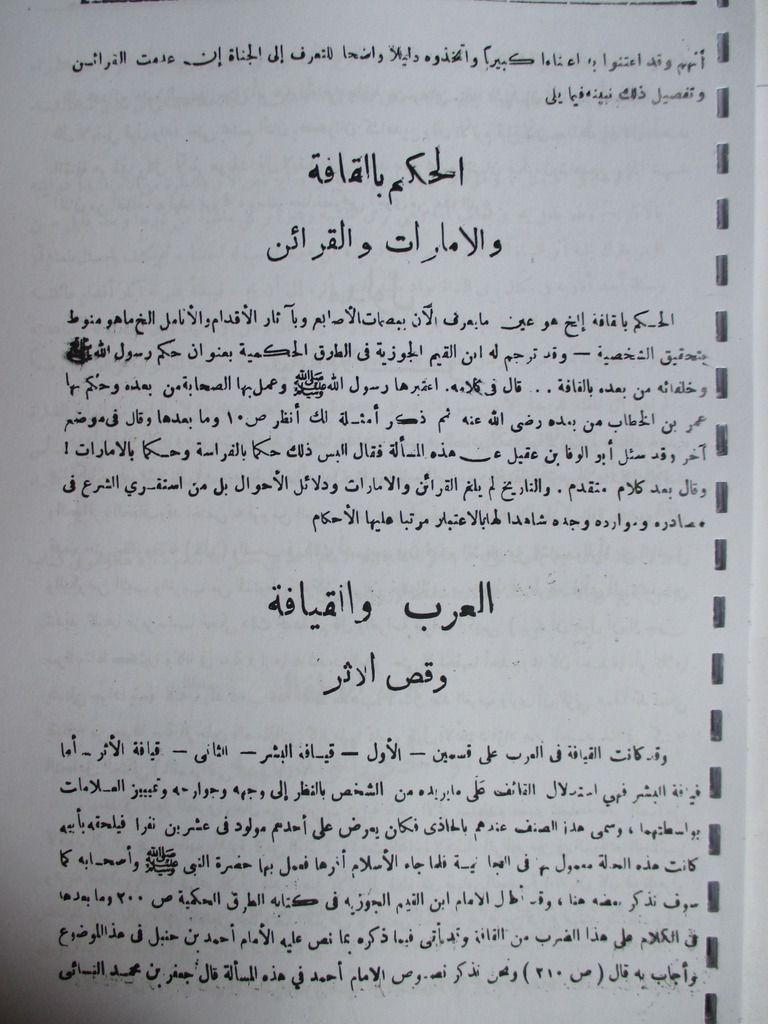 أنهم وقد اعتنوا به اعتناءا كبيراً واتخذوه دليلاً واضحا للتعرف إلى الجناة إن عدمت القرائن
وتفصيل ذلك نبينه فيما يلى
الحكم بالقافة
والامارات والقرائن
الحكم بالقافة إلخ هو عين مايعرف الآن ببصمات الأصابع وبآثار الأقدام والأنامل الخ ماهو منوط
بتحقيق الشخصية — وقد ترجم له ابن القيم الجوزية فى الطرق الحكمية بعنوان حكم رسول الله ﷺ
وخلفائه من بعده بالقافة ... قال فى كلامه. اعتبرها رسول الله ﷺ وعمل بها الصحابة من بعده وحكم بها
عمر بن الخطاب من بعده رضى الله عنه ثم ذكر أمثلة لك أنظر ص ١٠ وما بعدها وقال فى موضع
آخر وقد سئل أبو الوفا بن عقيل عن هذه المسألة فقال اليس ذلك حكما بالفراسة وحكما بالامارات !
وقال بعد كلام متقدم . والتاريخ لم يلغ القرائن والامارات ودلائل الأحوال بل من استقرى الشرع فى
مصادره وموارده وجده شاهدا لها بالاعتبار مرتبا عليها الأحكام
العرب والقيافة
وقص الاثر
وقد كانت القيافة فى العرب على قسمين — الأول — قيافة البشر — الثانى — قيافة الأثر — أما
قيافة البشر فهي استدلال القائف على مايريده من الشخص بالنظر إلى وجهه وجوارحه وتمييز العلامات
بواسطتهما ، وسمى هذا الصنف عندهم بالحاذى فكان يعرض على أحدهم مولود فى عشرين نفرا فيلحقه بأبيه
كانت هذه الحالة معمول بها فى الجاهلية فلما جاء الأسلام أقرها فعمل بها حضرة النبى ﷺ وأصحابه كما
سوف نذكر بعضه هنا ، وقد أطال الامام ابن القيم الجوزيه فى كتابه الطرق الحكمية ص ٢٠٠ وما بعدها
فى الكلام على هذا الضرب من القافة وتبدأتى فيما ذكره بما نص عليه الأمام أحمد بن حنبل فى هذا الموضوع
وأجاب به قال ( ص ٢١٠ ) ونحن نذكر نصوص الامام أحمد في هذه المسألة قال جعفر بن محمد النسائى